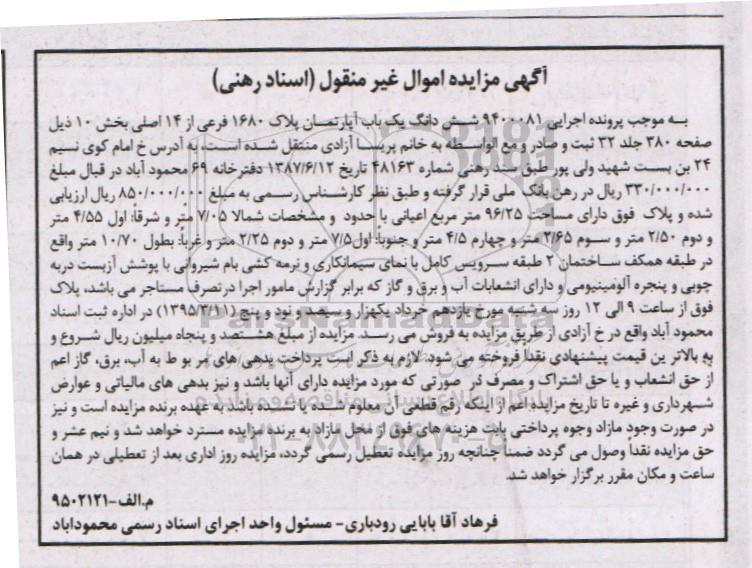 آگهی مزایده اموال غیر منقول (اسناد رهنی)
به موجب پرونده اجرایی ۹۴۰۰۰۸۱ شش دانگ یک باب آپارتمان پلاک ۱۶۸۰ فرعی از ۱۴ اصلی بخش ۱۰ ذیل
صفحه ۳۸۰ جلد ۳۲ ثبت و صادر و مع الواسطه به خانم پریسا آزادی منتقل شده است. به آدرس خ امام کوی نسیم
۲۴ بن بست شهید ولی پور طبق سند رهنی شماره ۴۸۱۶۳ تاریخ ۱۳۸۷/۶/۱۲ دفترخانه ۶۹ محمود آباد در قبال مبلغ
۳۳۰/۰۰۰/۰۰۰ ریال در رهن بانک ملی قرار گرفته و طبق نظر کارشناس رسمی به مبلغ ۸۵۰/۰۰۰/۰۰۰ ریال ارزیابی
شده و پلاک فوق دارای مساحت ۹۶/۲۵ متر مربع اعیانی با حدود و مشخصات شمالا ۷/۰۵ متر و شرقاً: اول ۴/۵۵ متر
و دوم ۲/۵۰ متر و سوم ۲/۶۵ متر و چهارم ۴/۵ متر و جنوباً: اول ۷/۵ متر و دوم ۲/۲۵ متر و غرباً: بطول ۱۰/۷۰ متر واقع
در طبقه همکف ساختمان ۲ طبقه سرویس کامل با نمای سیمانکاری و نرمه کشی بام شیروانی با پوشش آزبست دربه
چوبی و پنجره آلومینیومی و دارای انشعابات آب و برق و گاز که برابر گزارش مامور اجرا در تصرف مستاجر می باشد، پلاک
فوق از ساعت ۹ الی ۱۲ روز سه شنبه مورخ یازدهم خرداد یکهزار و سیصد و نود و پنج (۱۳۹۵/۳/۱۱) در اداره ثبت اسناد
محمود آباد واقع در خ آزادی از طریق مزایده به فروش می رسد. مزایده از مبلغ هشتصد و پنجاه میلیون ریال شروع و
به بالاترین قیمت پیشنهادی نقداً فروخته می شود. لازم به ذکر است پرداخت بدهی های مربوط به آب، برق، گاز اعم
از حق انشعاب و یا حق اشتراک و مصرف در صورتی که مورد مزایده دارای آنها باشد و نیز بدهی های مالیاتی و عوارض
شهرداری و غیره تا تاریخ مزایده اعم از اینکه رقم قطعی آن معلوم شده یا نشده باشد به عهده برنده مزایده است و نیز
در صورت وجود مازاد وجوه پرداختی بابت هزینه های فوق از محل مازاد به برنده مزایده مسترد خواهد شد و نیم عشر و
حق مزایده نقداً وصول می گردد ضمناً چنانچه روز مزایده تعطیل رسمی گردد، مزایده روز اداری بعد از تعطیلی در همان
ساعت و مکان مقرر برگزار خواهد شد.
م.الف-۹۵۰۲۱۲۱
فرهاد آقا بابایی رودباری- مسئول واحد اجرای اسناد رسمی محموداباد
ParsNamadData